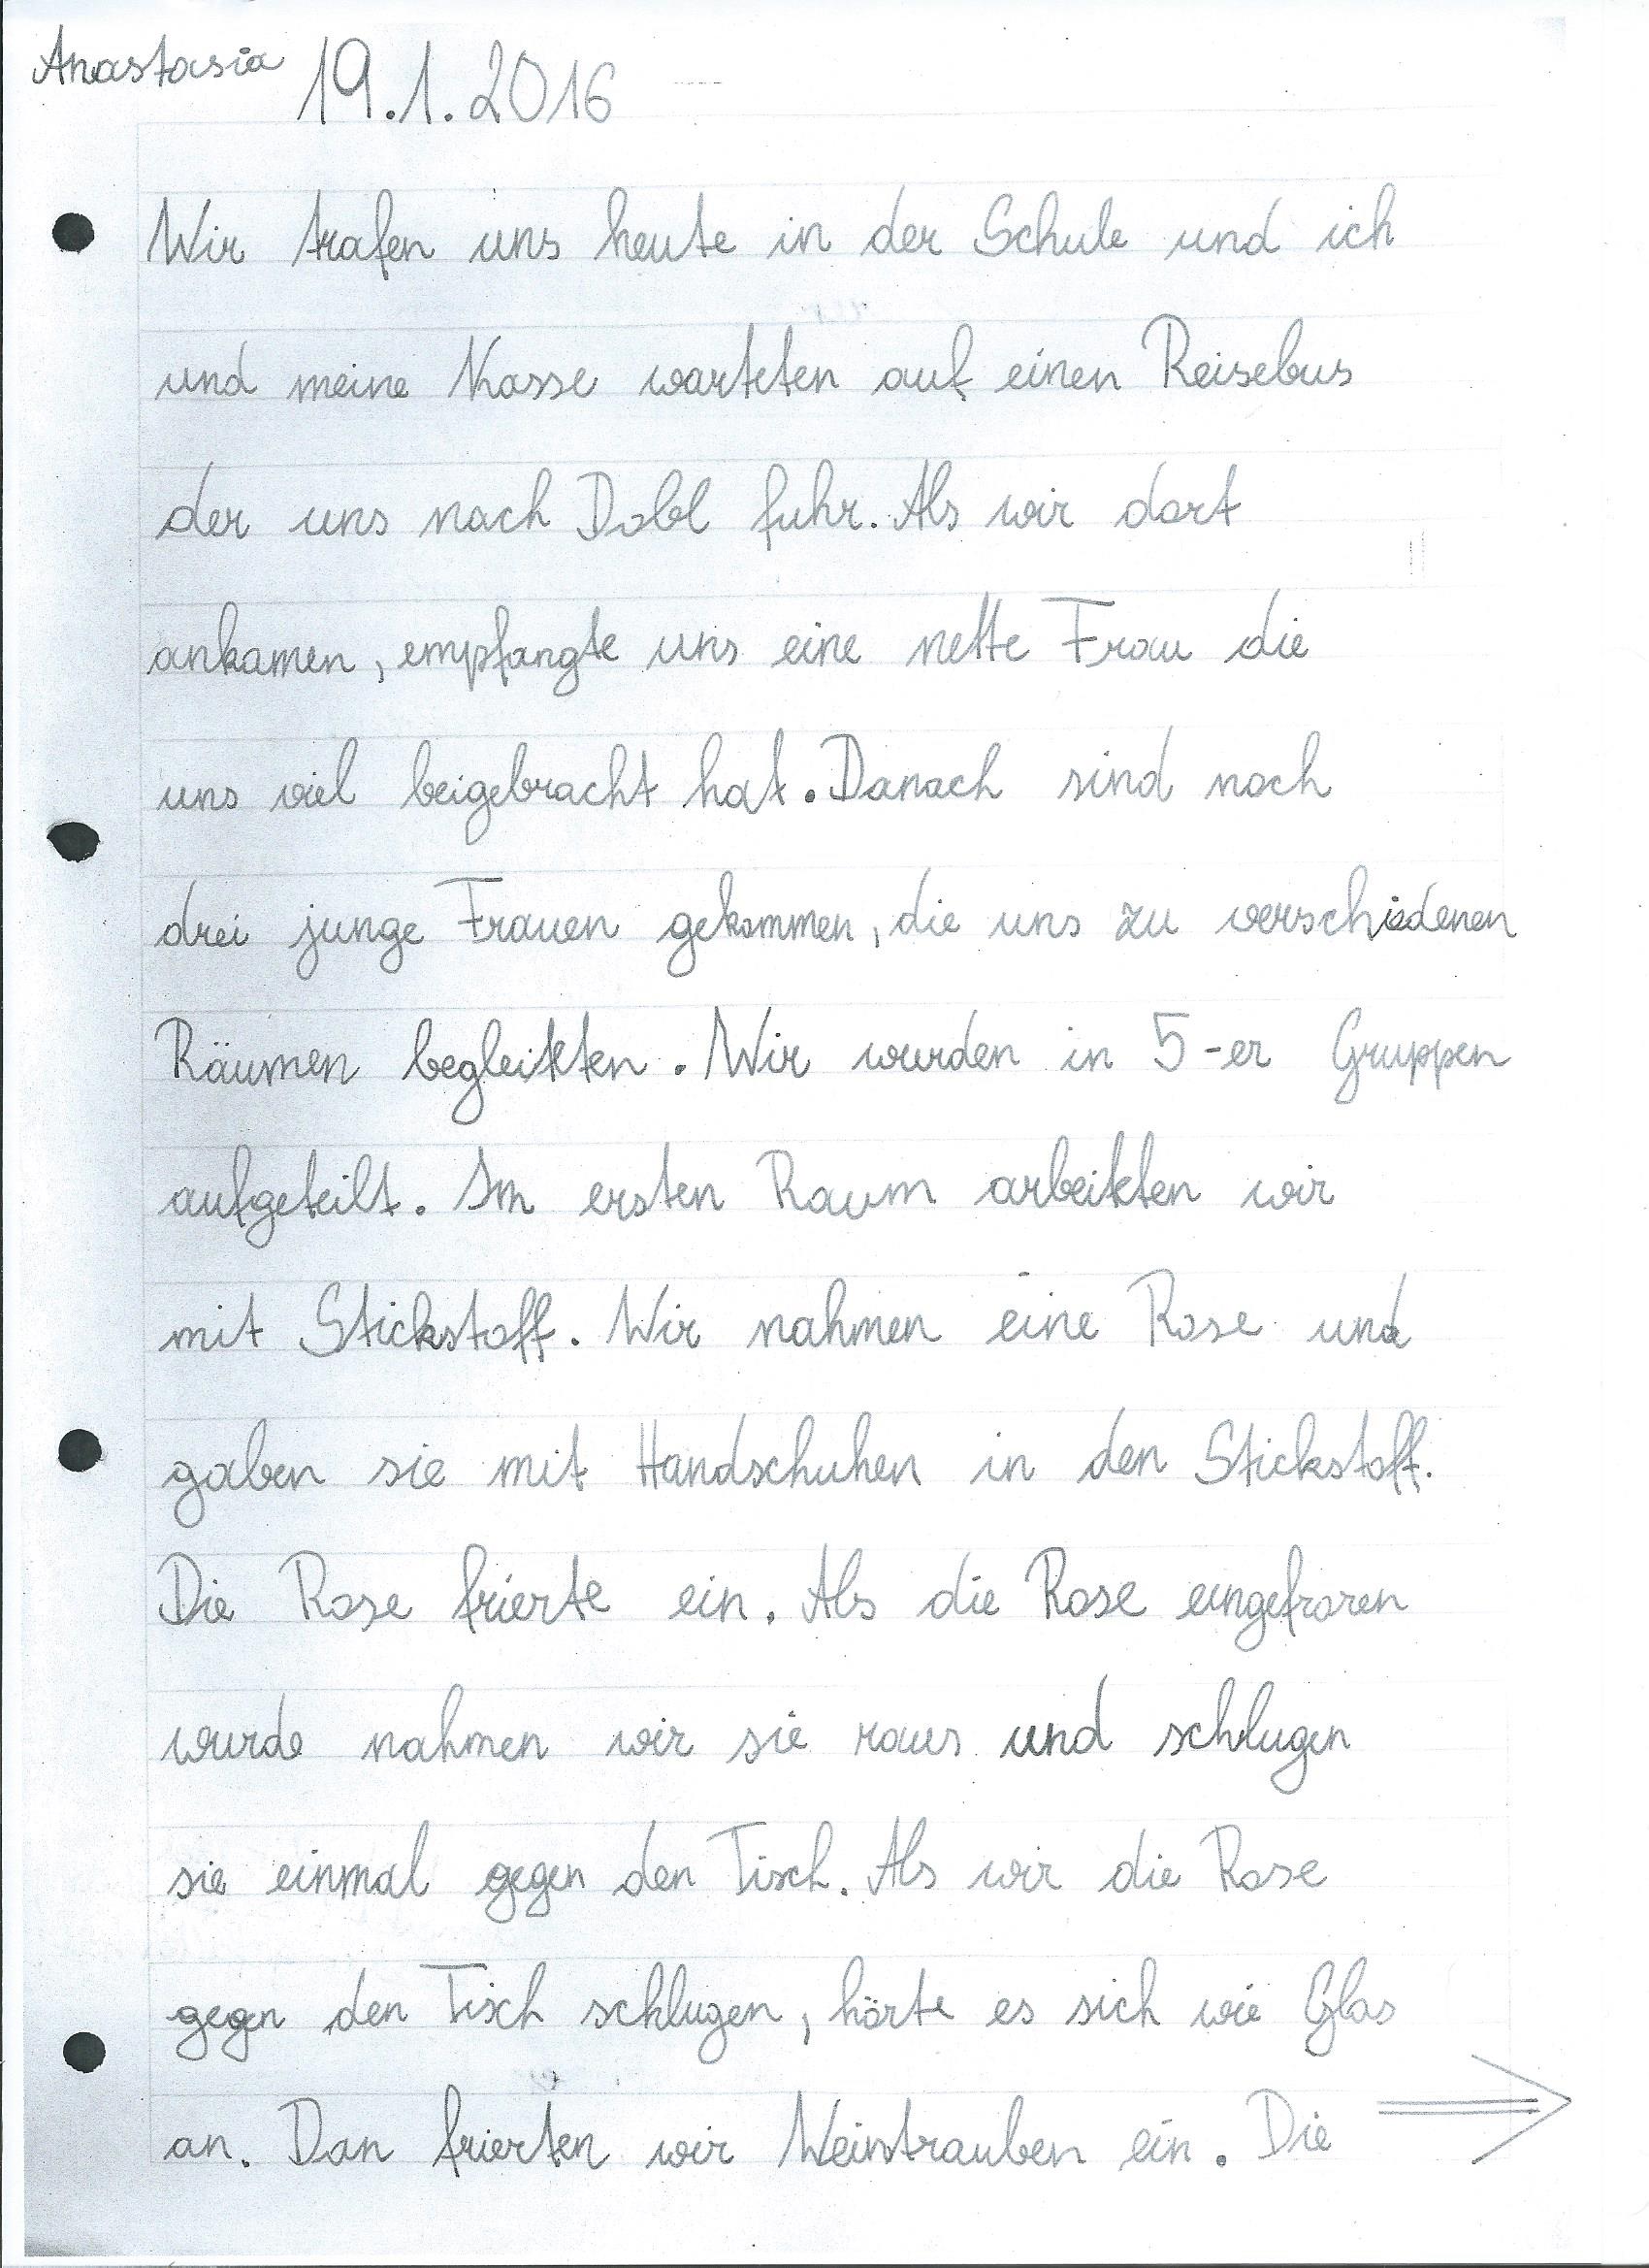 Anastasia 19.1.2016
Wir trafen uns heute in der Schule und ich
und meine Klasse warteten auf einen Reisebus
der uns nach Dobl fuhr. Als wir dort
ankamen, empfangte uns eine nette Frau die
uns viel beigebracht hat. Danach sind noch
drei junge Frauen gekommen, die uns zu verschiedenen
Räumen begleiteten. Wir wurden in 5-er Gruppen
aufgeteilt. Im ersten Raum arbeiteten wir
mit Stickstoff. Wir nahmen eine Rose und
gaben sie mit Handschuhen in den Stickstoff.
Die Rose frierte ein. Als die Rose eingefroren
wurde nahmen wir sie raus und schlugen
sie einmal gegen den Tisch. Als wir die Rose
gegen den Tisch schlugen, hörte es sich wie Glas
an. Dan frierten wir Weintrauben ein. Die